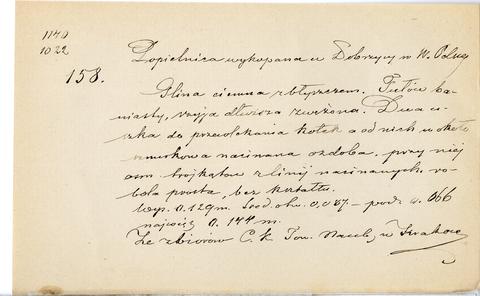 1140
1022
158.
Popielnica wykopana w Dobrzycy w W. Polsce
Glina ciemna z błyszczem. Tułów ba-
niasty, szyja dłuższa zwężona. Dwa u-
szka do przewlekania kółek a od nich w około
sznurkowa nacinana ozdoba, przy niej
osm trójkątów z linij nacinanych, ro-
bota prosta, bez kształtu.
Wys. 0.129m. Śred. otw. 0.087 – pod. 0.066
najwięk. 0.144 m.
Ze zbiorów C. k. Tow. Nauk. w Krakowie